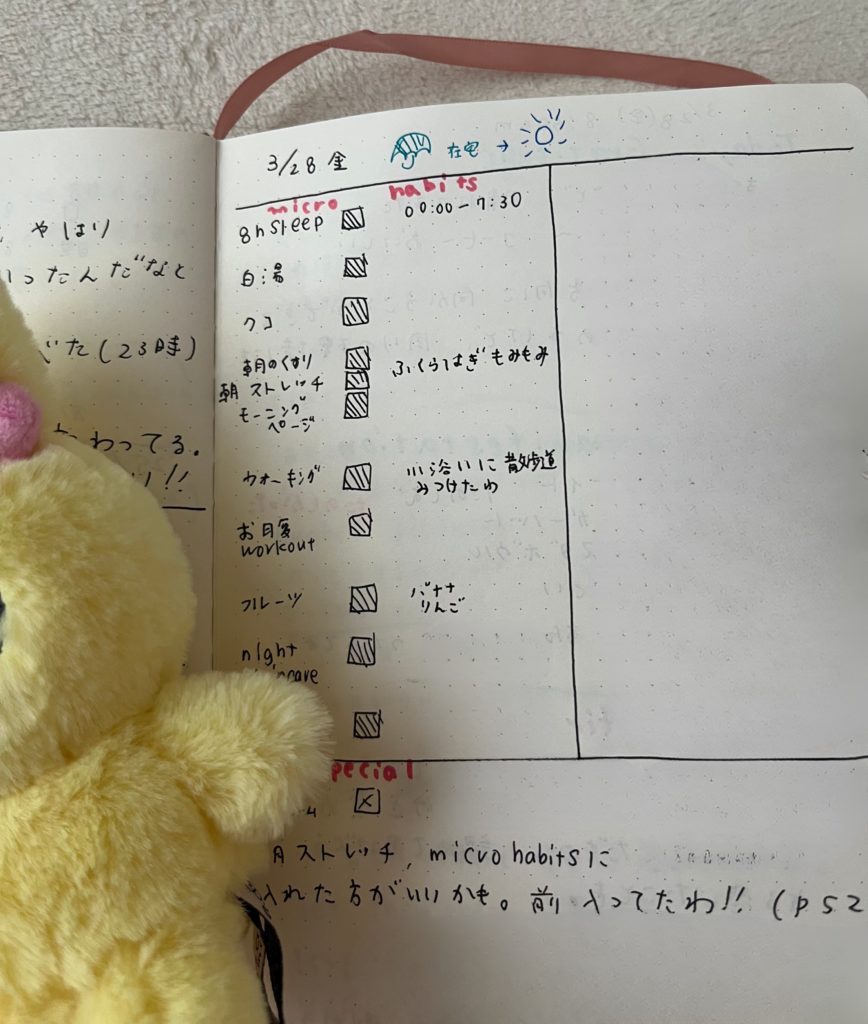 やはり
ったんだなと
た(23時)
わってる.
!!
3/28 金
在宅 →
micro habits
8h sleep 00:00-7:30
白湯
クコ
朝のくすり
朝ストレッチ ふくらはぎもみもみ
モーニング
ページ
ウォーキング 川沿いに散歩道
みつけたわ
お目覚
workout
フルーツ バナナ
りんご
night
care
pecial
ストレッチ, micro habitsに
入れた方がいいかも。前 入ってたわ!! (P52